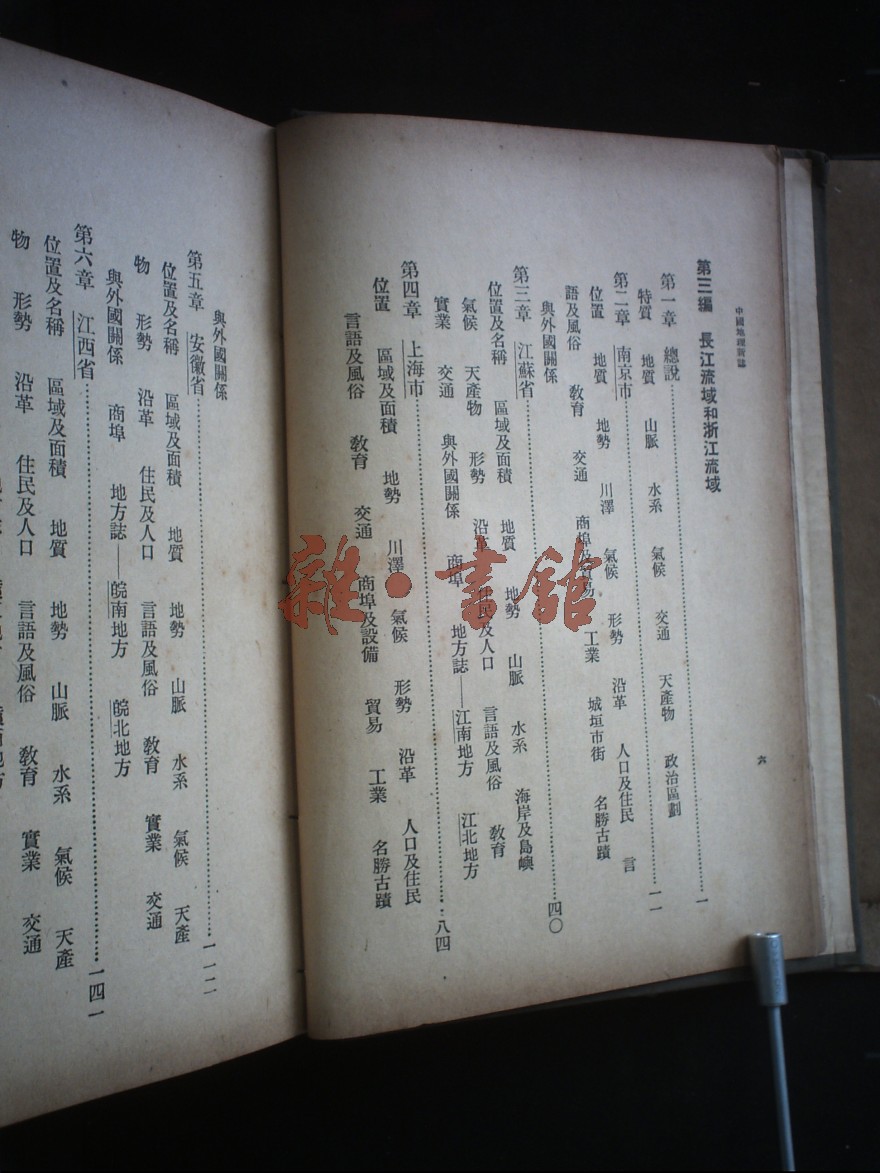 中國地理新誌
六
第三編 長江流域和浙江流域
第一章 總說……………一
特質 地質 山脈 水系 氣候 交通 天產物 政治區劃
第二章 南京市……………一一
位置 地質 地勢 川澤 氣候 形勢 沿革 人口及住民 言
語及風俗 教育 交通 商埠及貿易 工業 城垣市街 名勝古蹟
與外國關係
第三章 江蘇省……………四〇
位置及名稱 區域及面積 地質 地勢 山脈 水系 海岸及島嶼
氣候 天產物 形勢 沿革 住民及人口 言語及風俗 教育
實業 交通 與外國關係 商埠 地方誌——江南地方 江北地方
第四章 上海市……………八四
位置 區域及面積 地勢 川澤 氣候 形勢 沿革 人口及住民
言語及風俗 教育 交通 商埠及設備 貿易 工業 名勝古蹟
與外國關係
第五章 安徽省……………一一二
位置及名稱 區域及面積 地質 地勢 山脈 水系 氣候 天產
物 形勢 沿革 住民及人口 言語及風俗 教育 實業 交通
與外國關係 商埠 地方誌——皖南地方 皖北地方
第六章 江西省……………一四一
位置及名稱 區域及面積 地質 地勢 山脈 水系 氣候 天產
物 形勢 沿革 住民及人口 言語及風俗 教育 實業 交通
雜·書館